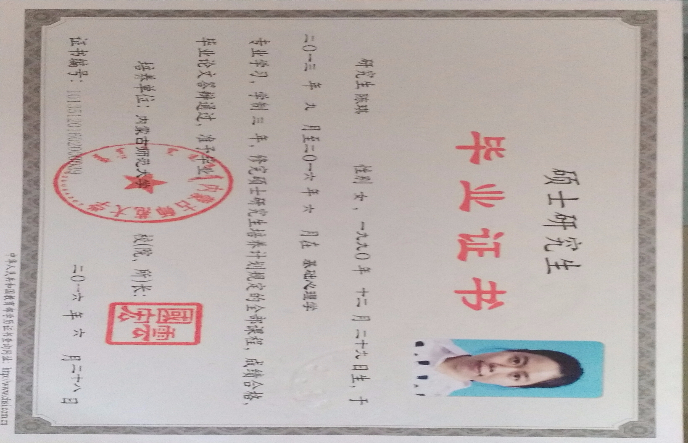 硕士研究生
毕业证书
研究生 陈琪 性别 女，一九九〇年 十二月 二十九日生，于
二〇一三 年 九 月至二〇一六年 六 月在 基础心理学
专业学习，学制 三 年，修完硕士研究生培养计划规定的全部课程，成绩合格，
毕业论文答辩通过，准予毕业。
培养单位：内蒙古师范大学 校(院、所)长：
证书编号： 二〇一六 年 六 月二十八日
内蒙古师范大学
中华人民共和国教育部学历证书查询网址：http://www.chsi.com.cn